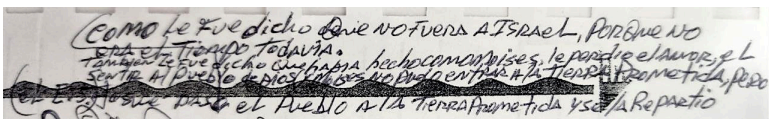 (COMO LE FUE DICHO QUE NO FUERA A ISRAEL, PORQUE NO
ERA EL TIEMPO TODAVIA.
TAMBIEN LE FUE DICHO QUE HABIA HECHO COMO MOISES, le perdio el AMOR, EL
SENTIR AL PUEBLO DE DIOS, MOISES NO PUDO ENTRAR A LA TIERRA PROMETIDA, PERO
JOSUE PASO el PUEBLO A LA TIERRA PROMETIDA y se la REPARTIO